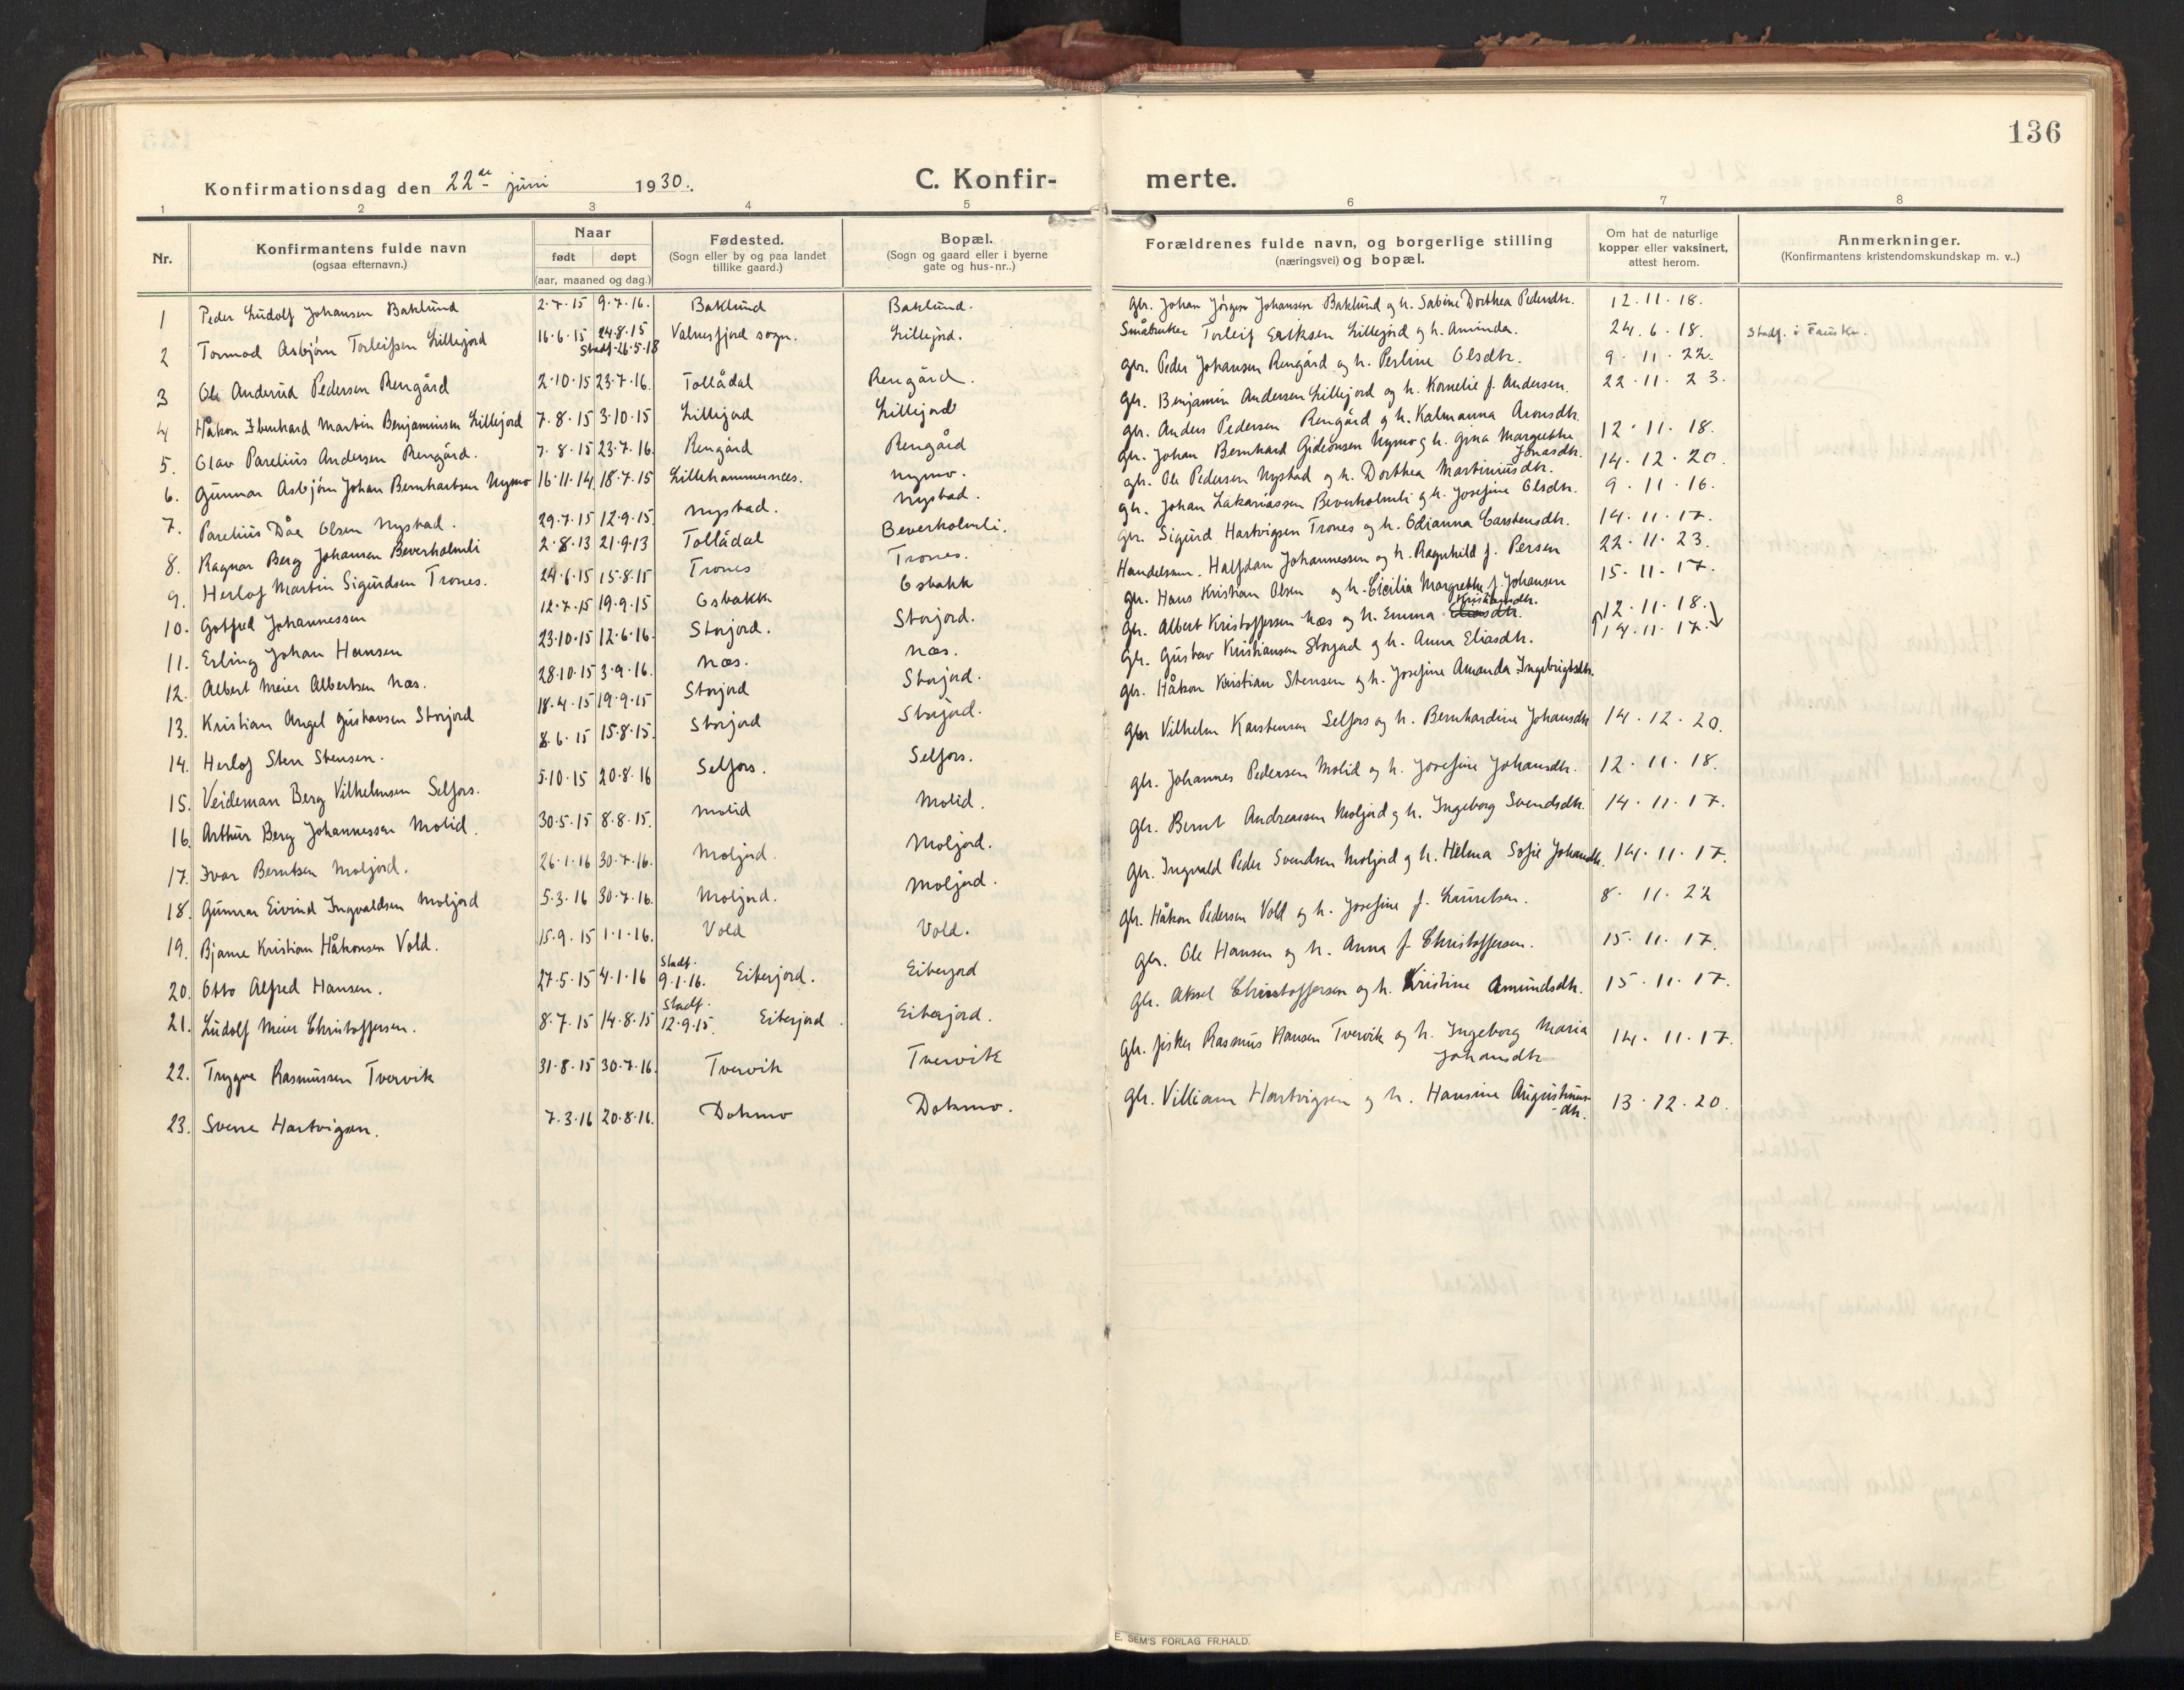 136
Konfirmationsdag den 22de juni 1930. C. Konfir- merte.
1 2 3 4 5 6 7 8
Nr. Konfirmantens fulde navn (ogsaa efternavn.) Naar født døpt (aar, maaned og dag.) Fødested. (Sogn eller by og paa landet tillike gaard.) Bopæl. (Sogn og gaard eller i byerne gate og hus-nr..) Forældrenes fulde navn, og borgerlige stilling (næringsvei) og bopæl. Om hat de naturlige kopper eller vaksinert, attest herom. Anmerkninger. (Konfirmantens kristendomskundskap m. v..)
1 Peder Ludolf Johansen Baklund 2.7.15 9.7.16. Baklund Baklund. gbr. Johan Jørgen Johansen Baklund og h. Sabine Dorthea Pedersdtr. 12.11.18.
2 Tormod Asbjørn Torleifsen Lillejord 16.6.15 24.8.15 Stadf. 26.5.18 Valnesfjord sogn. Lillejord. Småbruker Torleif Eriksen Lillejord og h. Aminda. 24.6.18. Stadf. i Fauske.
3 Ole Anderud Pedersen Rengård 2.10.15 23.7.16. Tollådal Rengård. gbr. Peder Johansen Rengård og h. Perline Olsdtr. 9.11.22.
4 Håkon Ibenhard Martin Benjaminsen Lillejord 7.8.15 3.10.15 Lillejord Lillejord gbr. Benjamin Andersen Lillejord og h. Kornelie f. Andersen. 22.11.23.
5. Olav Parelius Andersen Rengård. 7.8.15 23.7.16. Rengård Rengård gbr. Anders Pedersen Rengård og h. Kalmanna Aronsdtr.
6. Gunnar Asbjørn Johan Bernhartsen Nymo 16.11.14 18.7.15 Lillehammernæs. Nymo. gbr. Johan Bernhard Gideonsen Nymo og h. Gina Margrethe Jonasdtr. 12.11.18.
7. Parelius Dåe Olsen Nystad. 29.7.15 12.9.15. Nystad. Nystad. gbr. Ole Pedersen Nystad og h. Dorthea Martiniusdtr. 14.12.20.
8. Ragnar Berg Johansen Beverholmli 2.8.13 21.9.13 Tollådal Beverholmli. gbr. Johan Zakariassen Beverholmli og h. Josefine Olsdtr. 9.11.16.
9. Herlof Martin Sigurdsen Trones. 24.6.15 15.8.15 Trones Trones. gbr. Sigurd Hartvigsen Trones og h. Edianna Carstensdtr. 14.11.17.
10. Gotfred Johannessen 12.7.15 19.9.15 Osbakk Osbakk Handelsm. Halfdan Johannessen og h. Ragnhild f. Persen 22.11.23.
11. Erling Johan Hansen 23.10.15 12.6.16. Storjord. Storjord. gbr. Hans Kristian Olsen og h. Cicilia Margrethe f. Johansen 15.11.17.
12. Albert Meier Albertsen Næs. 28.10.15 3.9.16. Næs. Næs. gbr. Albert Kristoffersen Næs og h. Emma Eliasdtr. Kristiandtr. 12.11.18.
13. Kristian Angel Gustavsen Storjord 18.4.15 19.9.15 Storjord Storjord. gbr. Gustav Kristiansen Storjord og h. Anna Eliasdtr. 14.11.17.
14. Herlof Sten Stensen. 8.6.15 15.8.15. Storjord Storjord. gbr. Håkon Kristian Stensen og h. Josefine Amanda Ingebrigtsdtr.
15. Veideman Berg Vilhelmsen Selfors. 5.10.15 20.8.16 Selfors. Selfors. gbr Vilhelm Karstensen Selfors og h. Bernhardine Johansdtr. 14.12.20.
16. Arthur Berg Johannessen Molid. 30.5.15 8.8.15. Molid Molid. gbr. Johannes Pedersen Molid og h. Josefine Johansdtr. 12.11.18.
17. Ivar Berntsen Moljord. 26.1.16 30.7.16. Moljord. Moljord. gbr. Bernt Andreassen Moljord og h. Ingeborg Svendsdtr. 14.11.17.
18. Gunnar Eivind Ingvaldsen Moljord 5.3.16 30.7.16. Moljord. Moljord. gbr. Ingvald Peder Svendsen Moljord og h. Helma Sofie Johansdtr. 14.11.17.
19. Bjarne Kristian Håkonsen Vold. 15.9.15 1.1.16. Vold Vold. gbr. Håkon Pedersen Vold og h. Josefine f. Lauritsen. 8.11.22
20. Otto Alfred Hansen. 27.5.15 4.1.16 Stadf. 9.1.16. Eiterjord. Eiterjord gbr. Ole Hansen og h. Anna f. Christoffersen. 15.11.17.
21. Ludolf Meier Christoffersen. 8.7.15 14.8.15 Stadf. 12.9.15. Eiterjord. Eiterjord. gbr. Aksel Christoffersen og h. Kristine Amundsdtr. 15.11.17.
22. Trygve Rasmussen Tvervik 31.8.15 30.7.16. Tvervik Tvervik gbr. fisker Rasmus Hansen Tvervik og h. Ingeborg Maria Johansdtr 14.11.17.
23. Sverre Hartvigsen. 7.3.16 20.8.16. Dokmo Dokmo. gbr. Villiam Hartvigsen og h. Hansine Augustinus-dtr. 13.12.20.
E. SEM'S FORLAG FR.HALD.